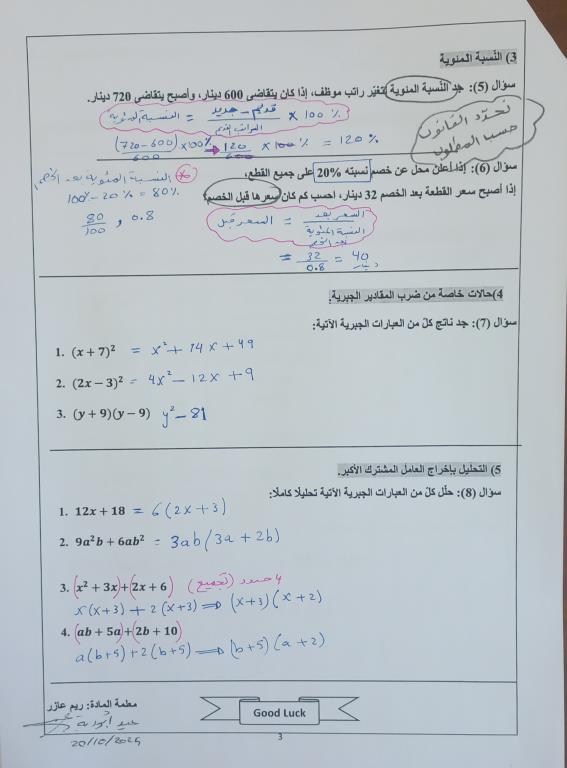 3) النسبة المئوية
سؤال (5): جد النسبة المئوية لتغير راتب موظف، إذا كان يتقاضى 600 دينار، وأصبح يتقاضى 720 دينار.
النسبة المئوية = جديد - قديم / الراتب القديم × 100 %
(720 - 600)/600 × 100% → 120/600 × 100 % = 120 %
نحدد القانون
حسب المطلوب
سؤال (6): إذا أعلن محل عن خصم نسبته 20% على جميع القطع،
إذا أصبح سعر القطعة بعد الخصم 32 دينار، احسب كم كان سعرها قبل الخصم؟
النسبة المئوية بعد الخصم
100% - 20% = 80%
80/100 , 0.8
السعر قبل = السعر بعد / النسبة المئوية بعد الخصم
= 32/0.8 = 40 دينار
4) حالات خاصة من ضرب المقادير الجبرية:
سؤال (7): جد ناتج كل من العبارات الجبرية الآتية:
1. (x + 7)² = x² + 14x + 49
2. (2x − 3)² = 4x² − 12x + 9
3. (y + 9)(y − 9) y² − 81
5) التحليل بإخراج العامل المشترك الأكبر.
سؤال (8): حلّل كل من العبارات الجبرية الآتية تحليلا كاملا:
1. 12x + 18 = 6(2x + 3)
2. 9a²b + 6ab² = 3ab(3a + 2b)
3. (x² + 3x)+(2x + 6) 4 حدود (تجميع)
x(x+3) + 2(x+3) ⟹ (x+3)(x+2)
4. (ab + 5a)+(2b + 10)
a(b+5)+2(b+5) ⟹ (b+5)(a+2)
معلمة المادة: ريم عازر
Good Luck
20/10/2024
3